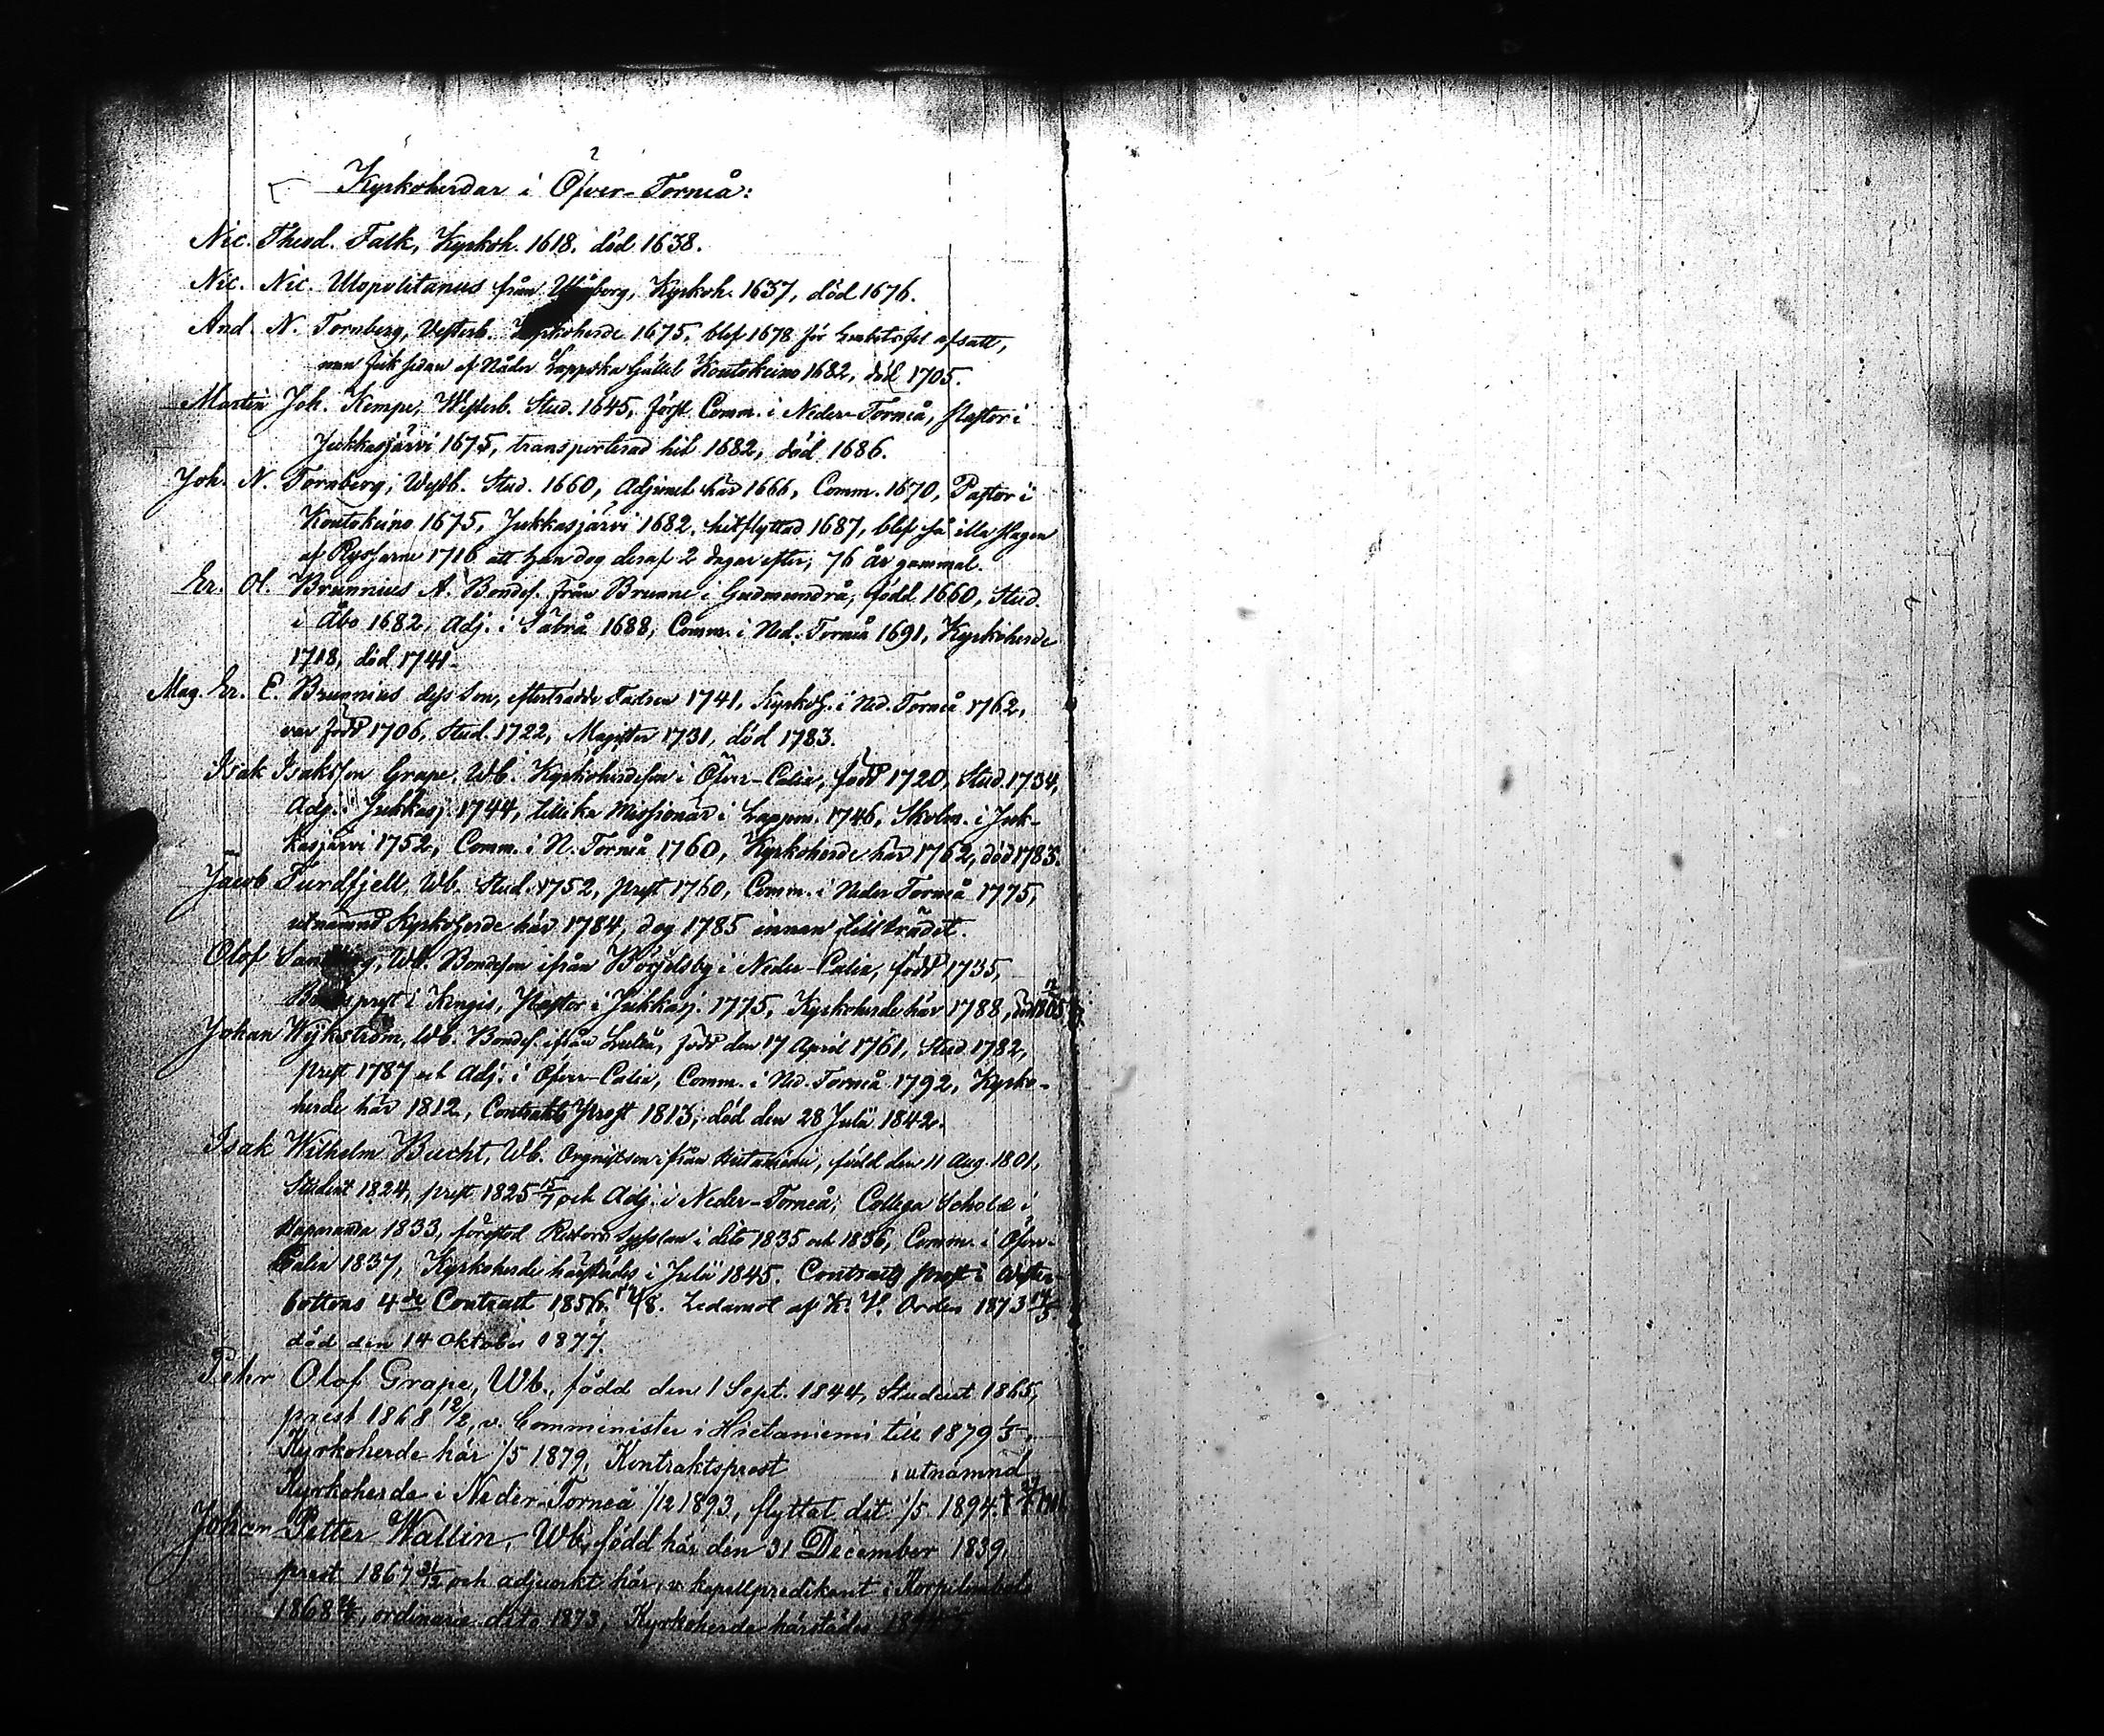 Kyrkoherdar i Öfver-Torneå:
Nic. Theod. Falk, Kyrkoh. 1618. död 1638.
Nic. Nic. Ulopolitanus från Uleåborg, Kyrkoh. 1637, död 1676.
And. N. Tornberg, Vesterb. Kyrkoherde 1675, blef 1678 för Embetsfel afsatt,
men fick sedan af Nåder Lappska Gället Koutokeino 1682, död 1705.
Martin Joh. Kempe, Westerb. Stud. 1645, först Comm. i Neder-Torneå, Pastor i
Jukkasjärvi 1675, transporterad hit 1682, död 1686.
Joh. N. Tornberg, Westb. Stud. 1660, Adjunct här 1666, Comm. 1670, Pastor i
Koutokeino 1675, Jukkasjärvi 1682. hitflyttad 1687, blef så illa slagen
af Ryssarne 1716 att han dog deraf 2 dagar efter, 76 år gammal.
Er. Ol. Brunnius A. Bondes. från Brunne i Gudmundrå, född 1660, Stud.
i Åbo 1682, Adj. i Säbrå 1688, Comm. i Ned. Torneå 1691, Kyrkoherde
1718, död 1741.
Mag. Er. E. Brunnius dess Son, efterträdde Fadren 1741, Kyrkoh. i Ned. Torneå 1762,
var född 1706, Stud. 1722, Magister 1731, död 1783.
Isak Isaksson Grape, Wb. Kyrkoherdeson i Öfver-Calix, född 1720, Stud. 1734,
Adj. i Jukkasj. 1744, tillika Missionär i Lappm. 1746, Skolm. i Juk-
kasjärvi 1752, Comm. i N. Torneå 1760, Kyrkoherde här 1762, död 1783.
Jacob Turdfjell, Wb. Stud. 1752, prest 1760, Comm. i Neder Torneå 1775,
utnämnd Kyrkoherde här 1784, dog 1785 innan tillträdet.
Olof Wb. Bondeson ifrån Börjelsby i Neder-Calix, född 1735,
i Kengis, Pastor i Jukkasj. 1775, Kyrkoherde här 1788,
Johan Wykström, Wb. Bondes. ifrån Luleå, född den 17 April 1761, Stud. 1782,
prest 1787 och Adj. i Öfver-Calix, Comm. i Ned. Torneå 1792, Kyrko-
herde här 1812, Contracts Prost 1813, död den 28 Julii 1842.
Isak Wilhelm Bucht, Wb. Orgnistson ifrån Hietaniemi, född den 11 Aug. 1801,
Student 1824, prest 1825 och Adj. i Neder-Torneå, Collega Scholæ i
Haparanda 1833, förestod Rectors Sysslan i dito 1835 och 1836, Comm. i Öfver-
Calix 1837, Kyrkoherde härstädes i Julii 1845. Contracts prost i Wester-
bottens 4de Contract 1856. Ledamot af K. V. Orden 1873
död den 14 Oktober 1877.
Pehr Olof Grape, Wb., född den 1 Sept. 1844, Student 1865,
prest 1868 12/2, v. Comminister i Hietaniemi till 1879 1/5.
Kyrkoherde här 1/5 1879, Kontraktsprost , utnämnd
Kyrkoherde i Neder-Torneå 1/12 1893, flyttat dit 1/5 1894. †
Johan Petter Wallin, Wb, född här den 31 December 1839,
prest 1867 och adjunkt här, v. kapellpredikant i Korpilombolo
1868, ordinarie dito 1873, Kyrkoherde härstädes